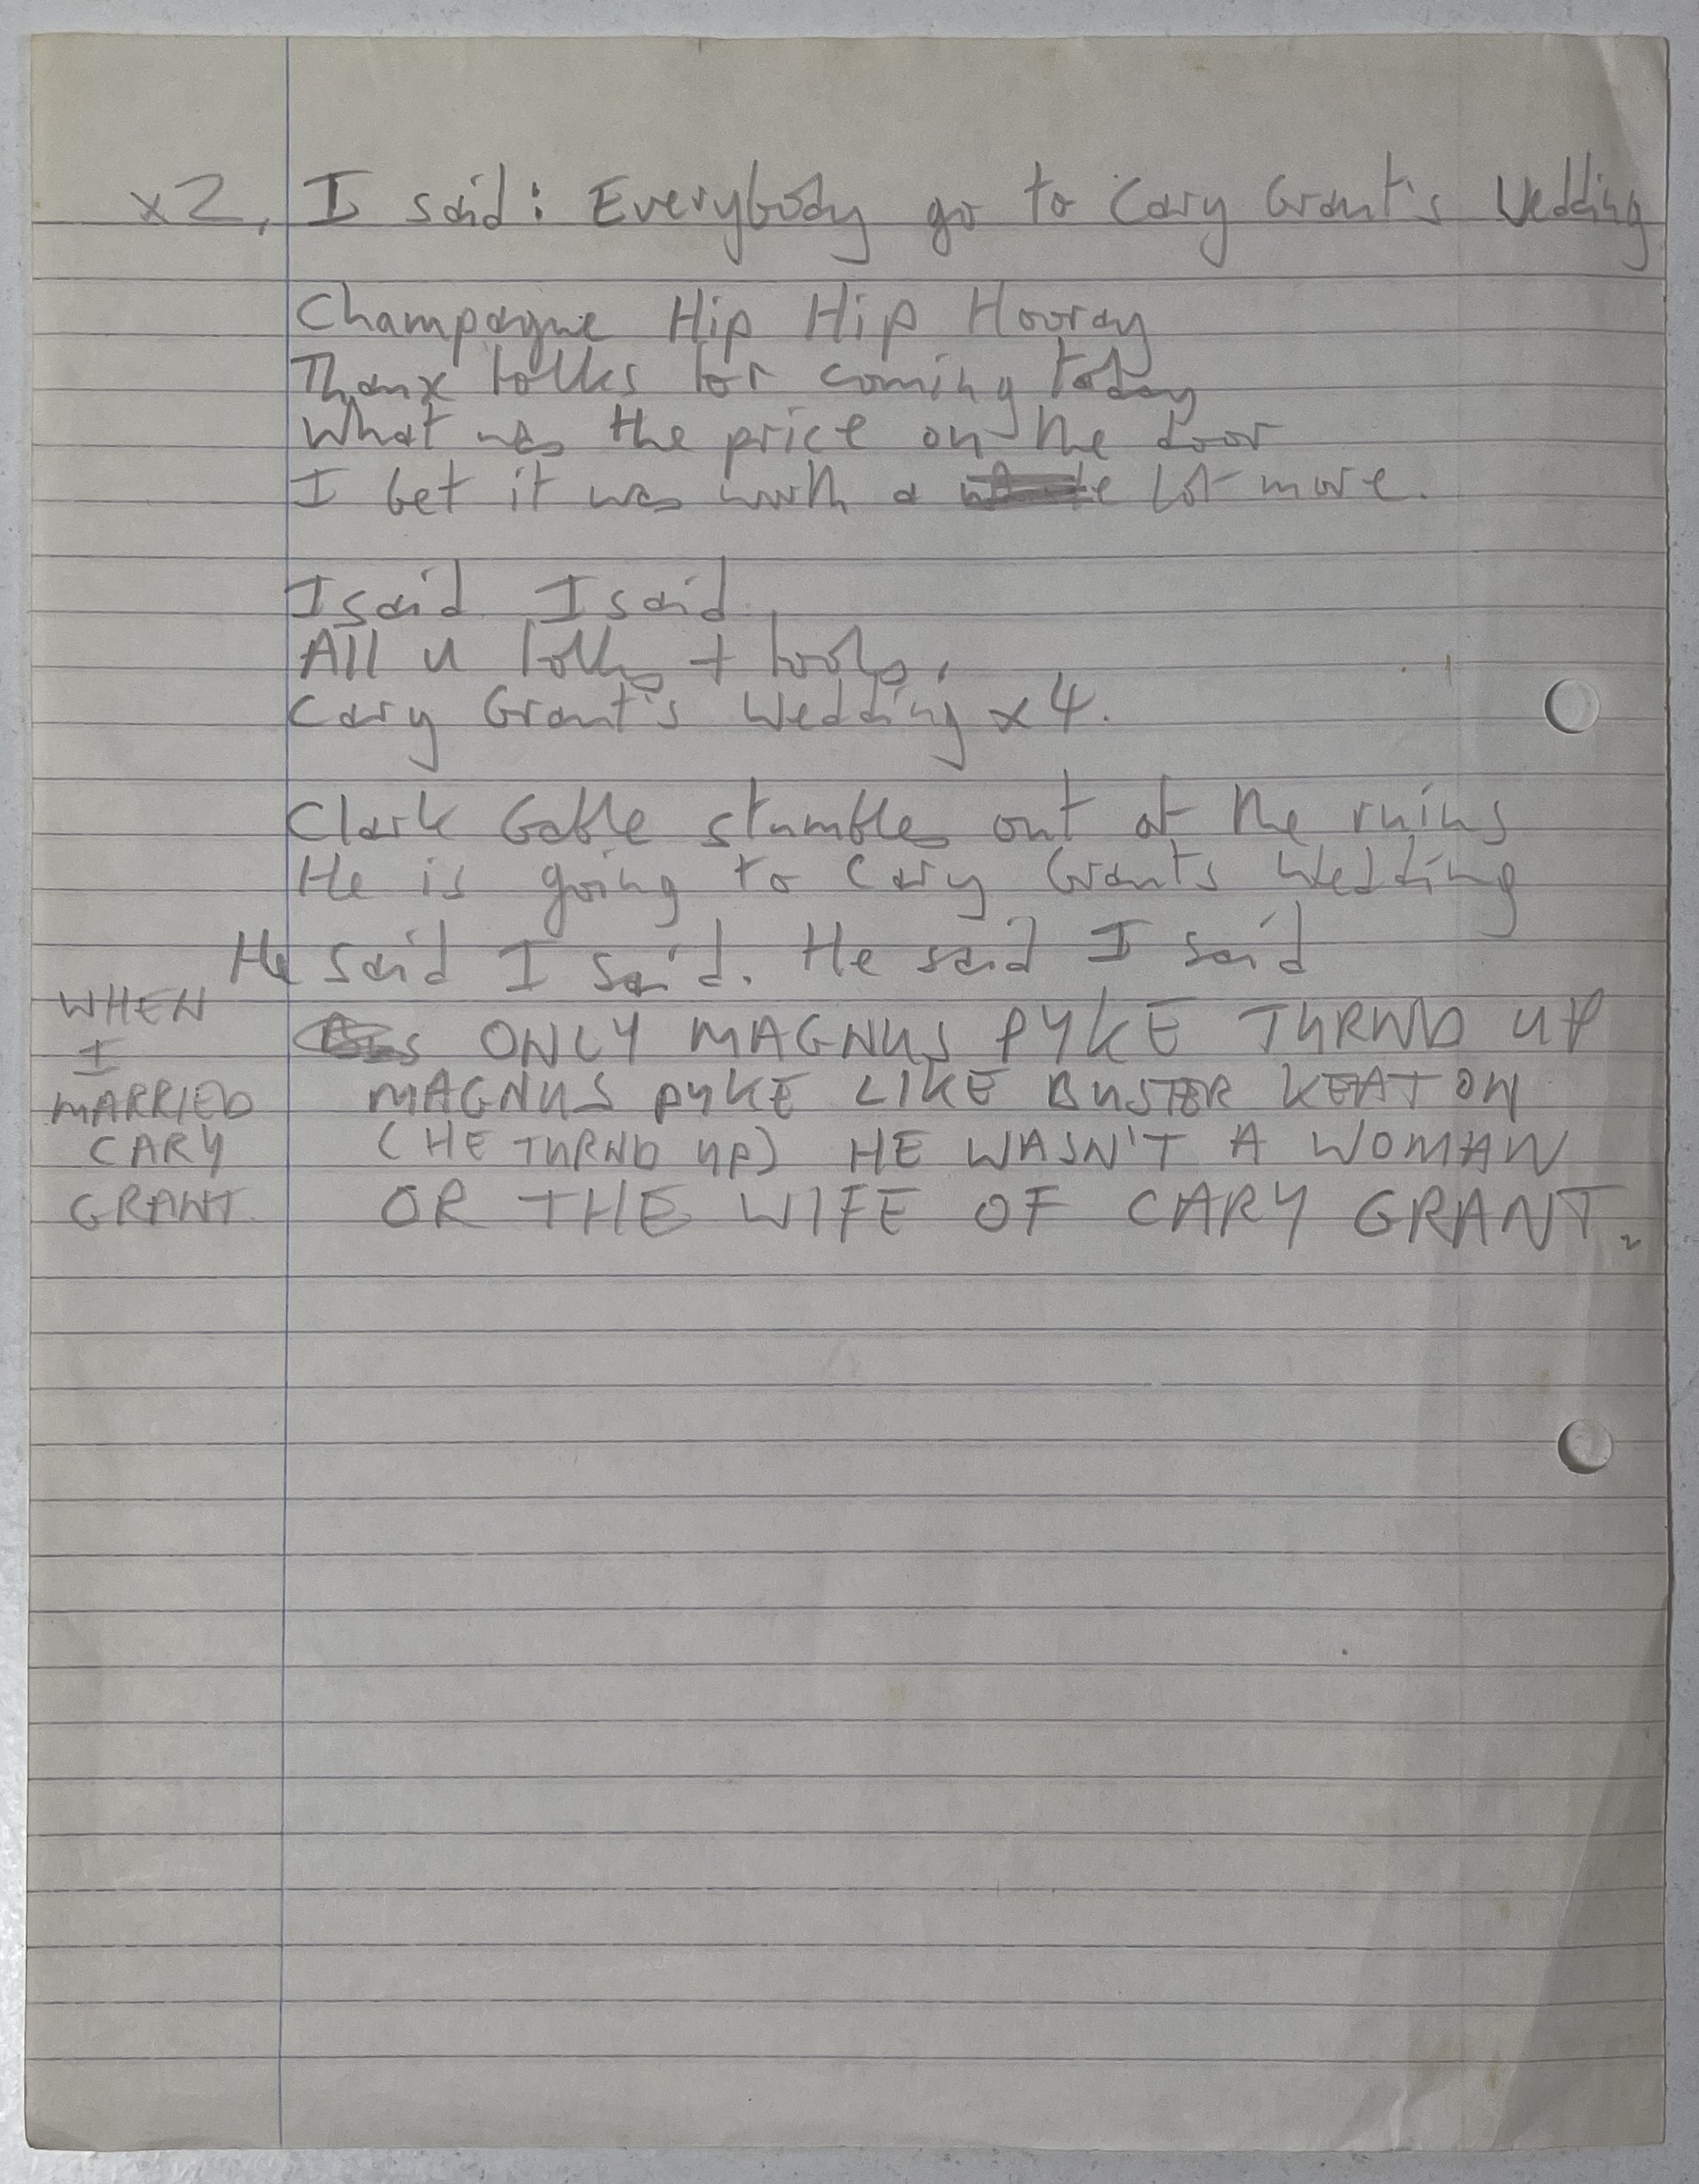 x2, I said: Everybody go to Cary Grant's Wedding
Champagne Hip Hip Hooray
Thanx folks for coming today
What was the price on the door
I bet it was worth a lot more.
I said I said
All u folks + fools,
Cary Grant's Wedding x4.
Clark Gable stumbles out of the ruins
He is going to Cary Grants Wedding
He said I said. He said I said
WHEN
I
MARRIED
CARY
GRANT.
ONLY MAGNUS PYKE TURND UP
MAGNUS PYKE LIKE BUSTER KEATON
(HE TURND UP) HE WASN'T A WOMAN
OR THE WIFE OF CARY GRANT.